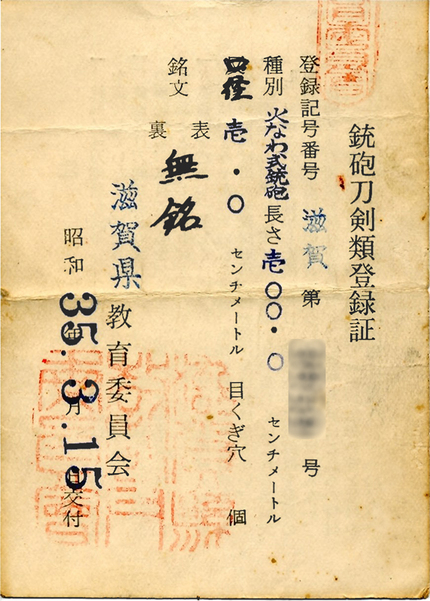 銃砲刀剣類登録証
登録記号番号 滋賀 第 号
種別 火なわ式銃砲 長さ 壱〇〇.〇 センチメートル
口径 壱.〇 センチメートル 目くぎ穴 個
銘文 表 無銘
裏
滋賀県教育委員会
昭和35年3月15日交付